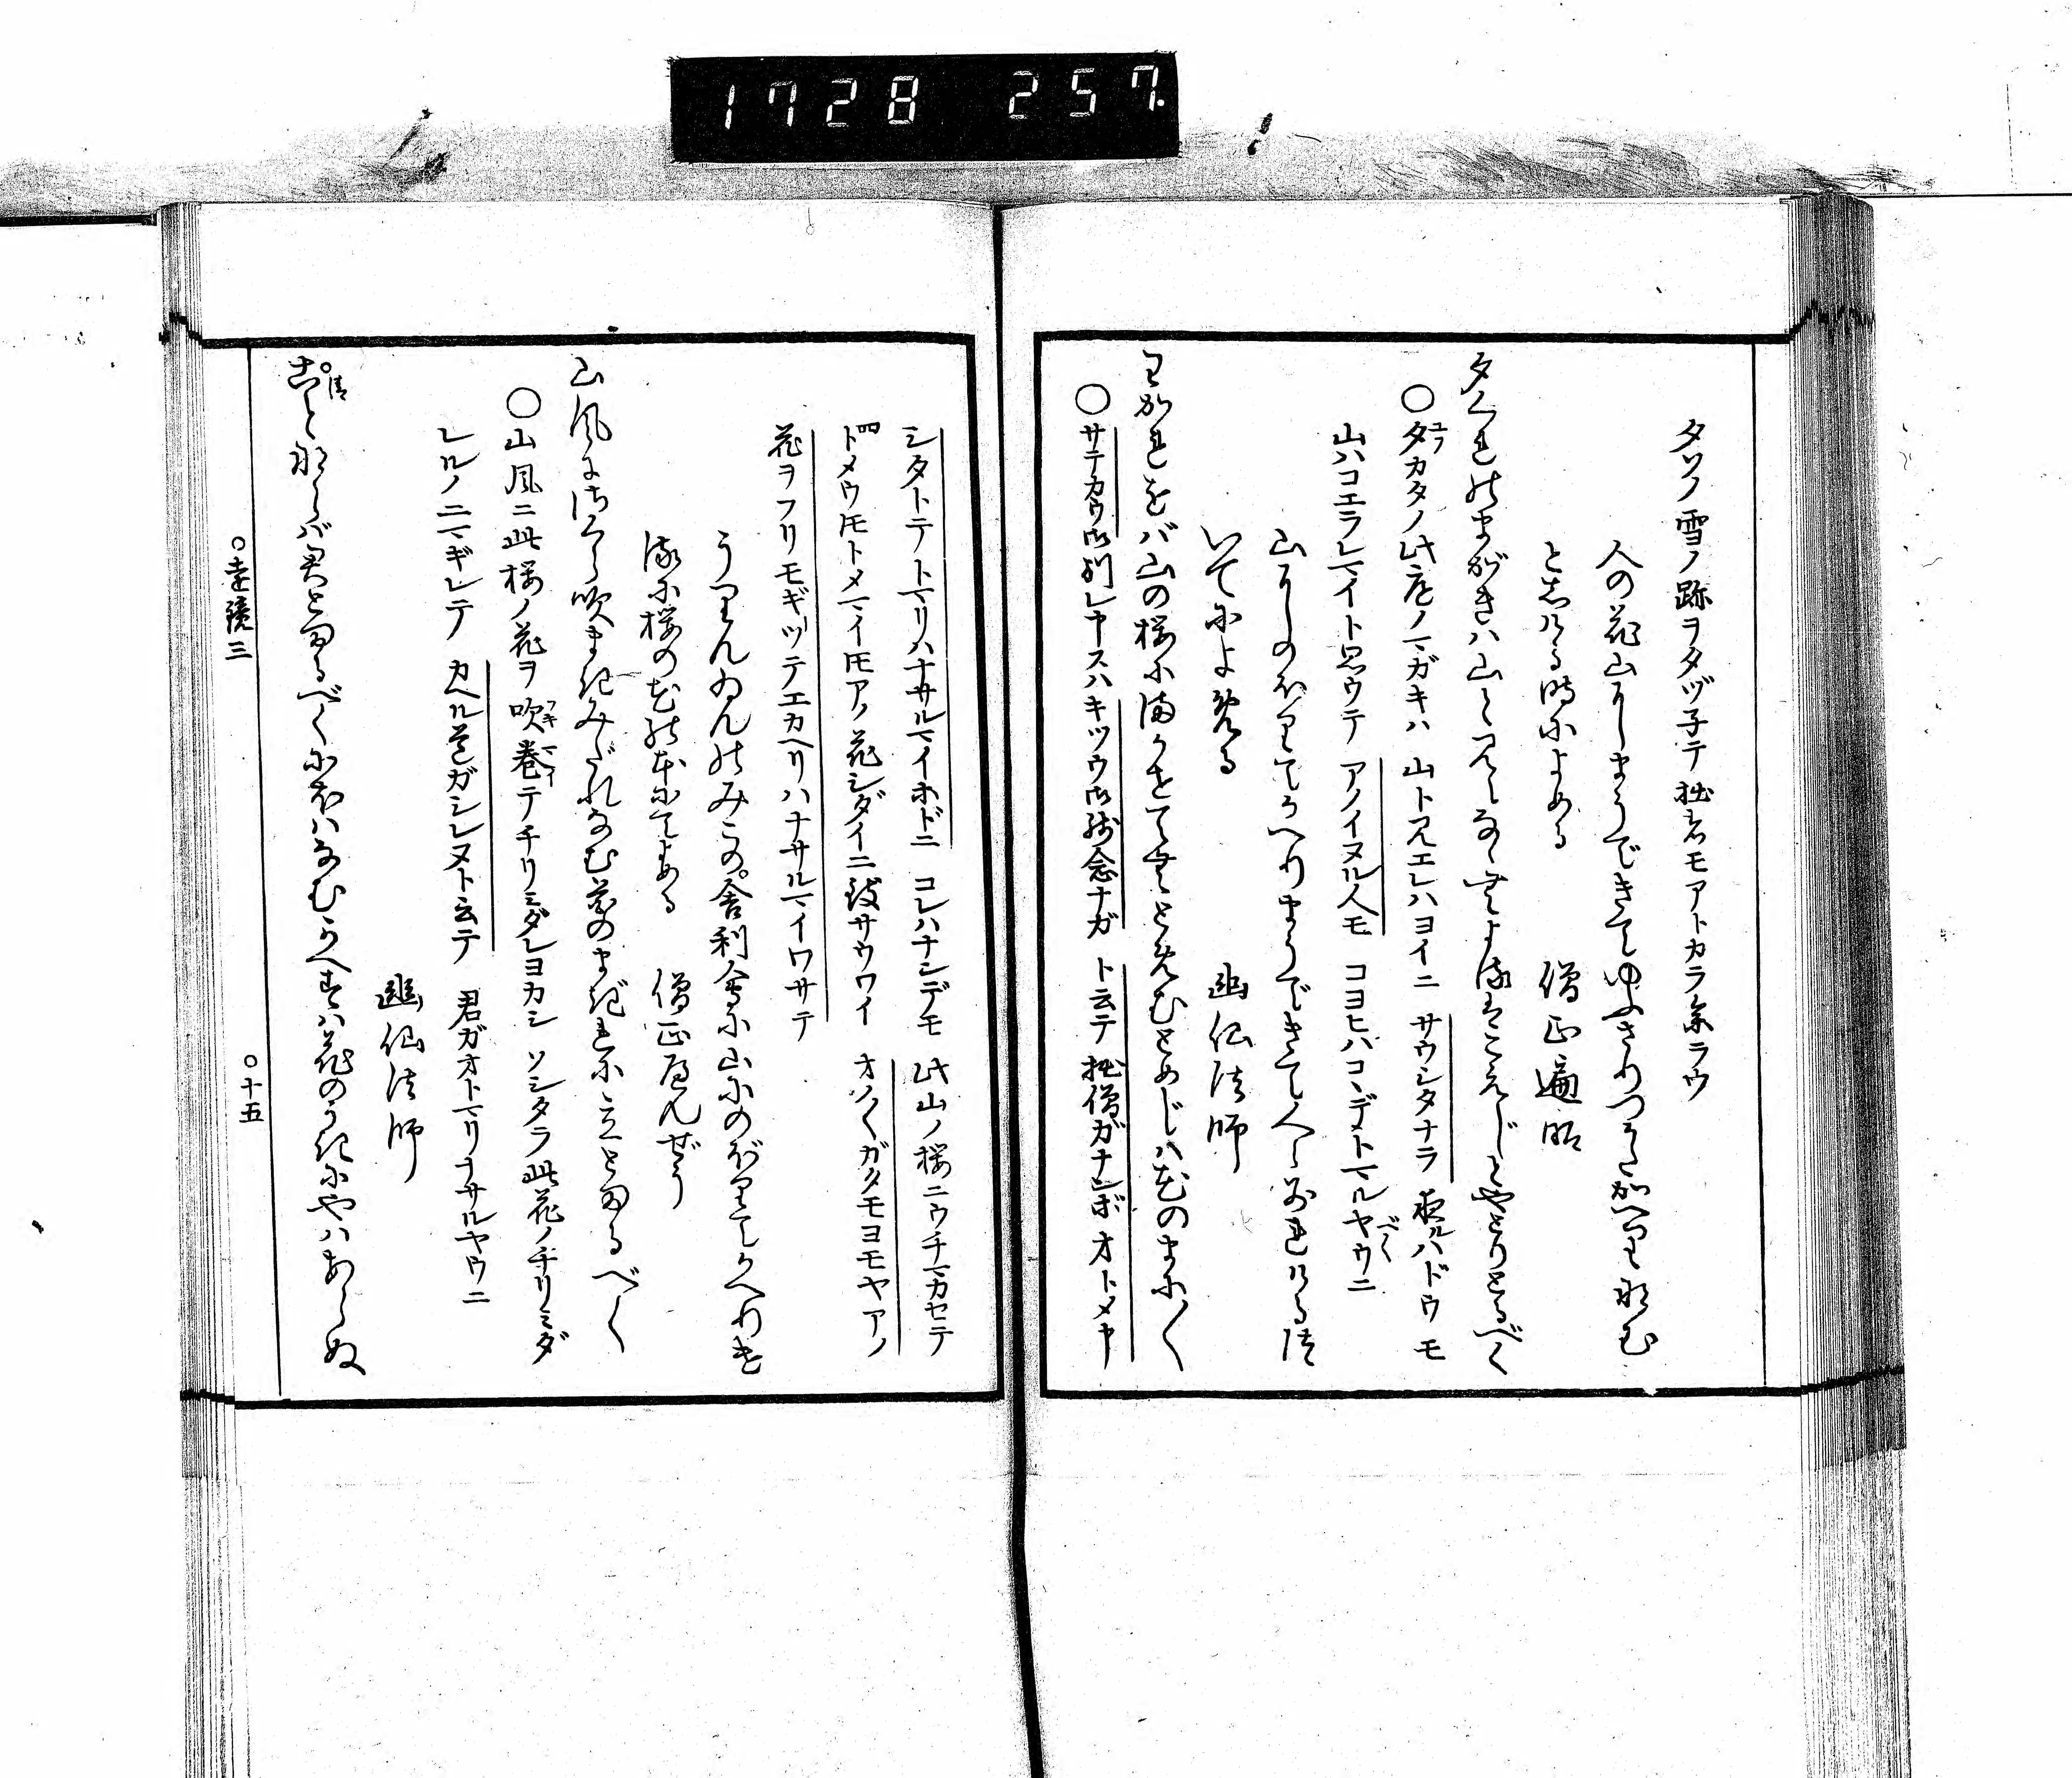 1728 257.
タソノ雪ノ跡ヲタヅ子テ拙者モアトカラ参ラウ
人の花山にまうできてゆふさりつかたかへりなむ
としける時によめる 僧正遍昭
夕くれのまがきハ山と見えなゝむよるハこえじとやとりとるべく
○夕カタノ此庭ノマガキハ 山ト見エレハヨイニ サウシタナラ 夜ルハドウモ
山ハコエラレマイト思ウテ アノイヌル人モ コヨヒハコヽデトマルヤウニ
山にのぼりてかへりまうできて人々わかれけるつ
いてによめる 幽仙法師
わかれをバ山の桜にまかせてむとめむとめじハ花のまに〱
○サテカウ御別レ申スハキツウ御残念ナガ ト云テ 拙僧ガナンボ オトメ申
シタトテトマリハナサルマイホドニ コレハナンデモ 此山ノ桜ニウチマカセテ
トメウトモトメマイトモアノ花シダイニ致サウワイ オソ〱ガタモヨモヤアノ
花ヲフリモギツテエカヘリハナサルマイワサテ
うりんゐんのみこの舎利会に山にのぼりてかへりけ
るに桜の花の本にてよめる 僧正へんぜう
山風にさくら吹まきみだれなむ花のまぎれに立とまるべく
○山風ニ此桜ノ花ヲ吹巻テチリミダレヨカシ ソシタラ此花ノチリミダ
レルノニマギレテ カヘル道ガシレヌト云テ 君ガオトマリナサルヤウニ
幽仙法師
ことならバ君とまるべくにほハなむかへすハ花のうきにやハあらぬ
○遠鏡三 ○十五